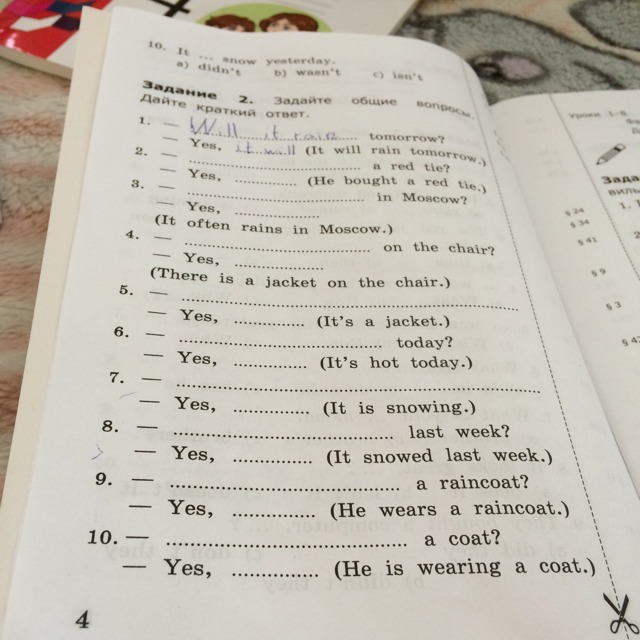 10. It ... snow yesterday.
a) didn't b) wasn't c) isn't
Задание 2. Задайте общие вопросы.
Дайте краткий ответ.
1. — Will it rain tomorrow?
— Yes, it will (It will rain tomorrow.)
2. — .............................. a red tie?
— Yes, ............ (He bought a red tie.)
3. — .............................. in Moscow?
— Yes, ................
(It often rains in Moscow.)
4. — .............................. on the chair?
— Yes, ................
(There is a jacket on the chair.)
5. — ............................................................
— Yes, ............. (It's a jacket.)
6. — .............................. today?
— Yes, ............. (It's hot today.)
7. — ............................................................
— Yes, ............. (It is snowing.)
8. — .............................. last week?
— Yes, ............... (It snowed last week.)
9. — .............................. a raincoat?
— Yes, .............. (He wears a raincoat.)
10. — .............................. a coat?
— Yes, ............. (He is wearing a coat.)
4
Уроки 1–8
§ 24
§ 34
§ 41
§ 9
§ 3